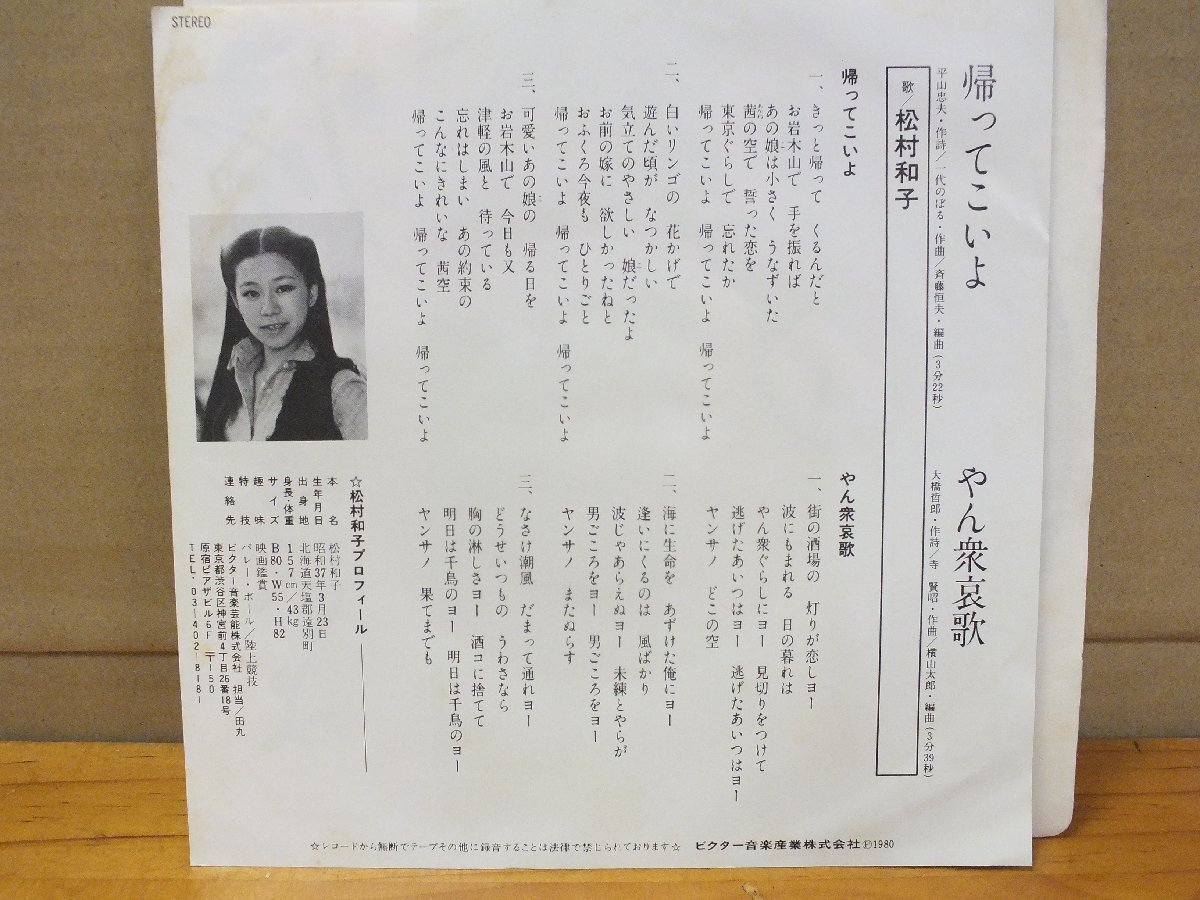 STEREO
帰ってこいよ
平山忠夫・作詩/一代のぼる・作曲/斉藤恒夫・編曲(3分22秒)
やん衆哀歌
大橋哲郎・作詩/寺 賢昭・作曲/横山太郎・編曲(3分39秒)
歌/松村和子
帰ってこいよ
一、きっと帰って くるんだと
お岩木山で 手を振れば
あの娘は小さく うなずいた
茜の空で 誓った恋を
東京ぐらしで 忘れたか
帰ってこいよ 帰ってこいよ 帰ってこいよ
二、白いリンゴの 花かげで
遊んだ頃が なつかしい
気立てのやさしい 娘だったよ
お前の嫁に 欲しかったねと
おふくろ今夜も ひとりごと
帰ってこいよ 帰ってこいよ 帰ってこいよ
三、可愛いあの娘の 帰る日を
お岩木山で 今日も又
津軽の風と 待っている
忘れはしまい あの約束の
こんなにきれいな 茜空
帰ってこいよ 帰ってこいよ 帰ってこいよ
やん衆哀歌
一、街の酒場の 灯りが恋しヨー
波にもまれる 日の暮れは
やん衆ぐらしにヨー 見切りをつけて
逃げたあいつはヨー 逃げたあいつはヨー
ヤンサノ どこの空
二、海に生命を あずけた俺にヨー
逢いにくるのは 風ばかり
波じゃあらえぬヨー 未練とやらが
男ごころをヨー 男ごころをヨー
ヤンサノ またぬらす
三、なさけ潮風 だまって通れヨー
どうせいつもの うわさなら
胸の淋しさヨー 酒コに捨てて
明日は千鳥のヨー 明日は千鳥のヨー
ヤンサノ 果てまでも
☆松村和子プロフィール
本名 松村和子
生年月日 昭和37年3月23日
出身地 北海道天塩郡遠別町
身長・体重 157cm/43kg
サイズ B80・W55・H82
趣味 映画鑑賞
特技 バレー・ボール/陸上競技
連絡先 ビクター音楽芸能株式会社 担当/田丸
東京都渋谷区神宮前4丁目26番18号
原宿ピアザビル6F 〒150
TEL・03-402-8181
☆レコードから無断でテープその他に録音することは法律で禁じられております☆ ビクター音楽産業株式会社 Ⓟ1980